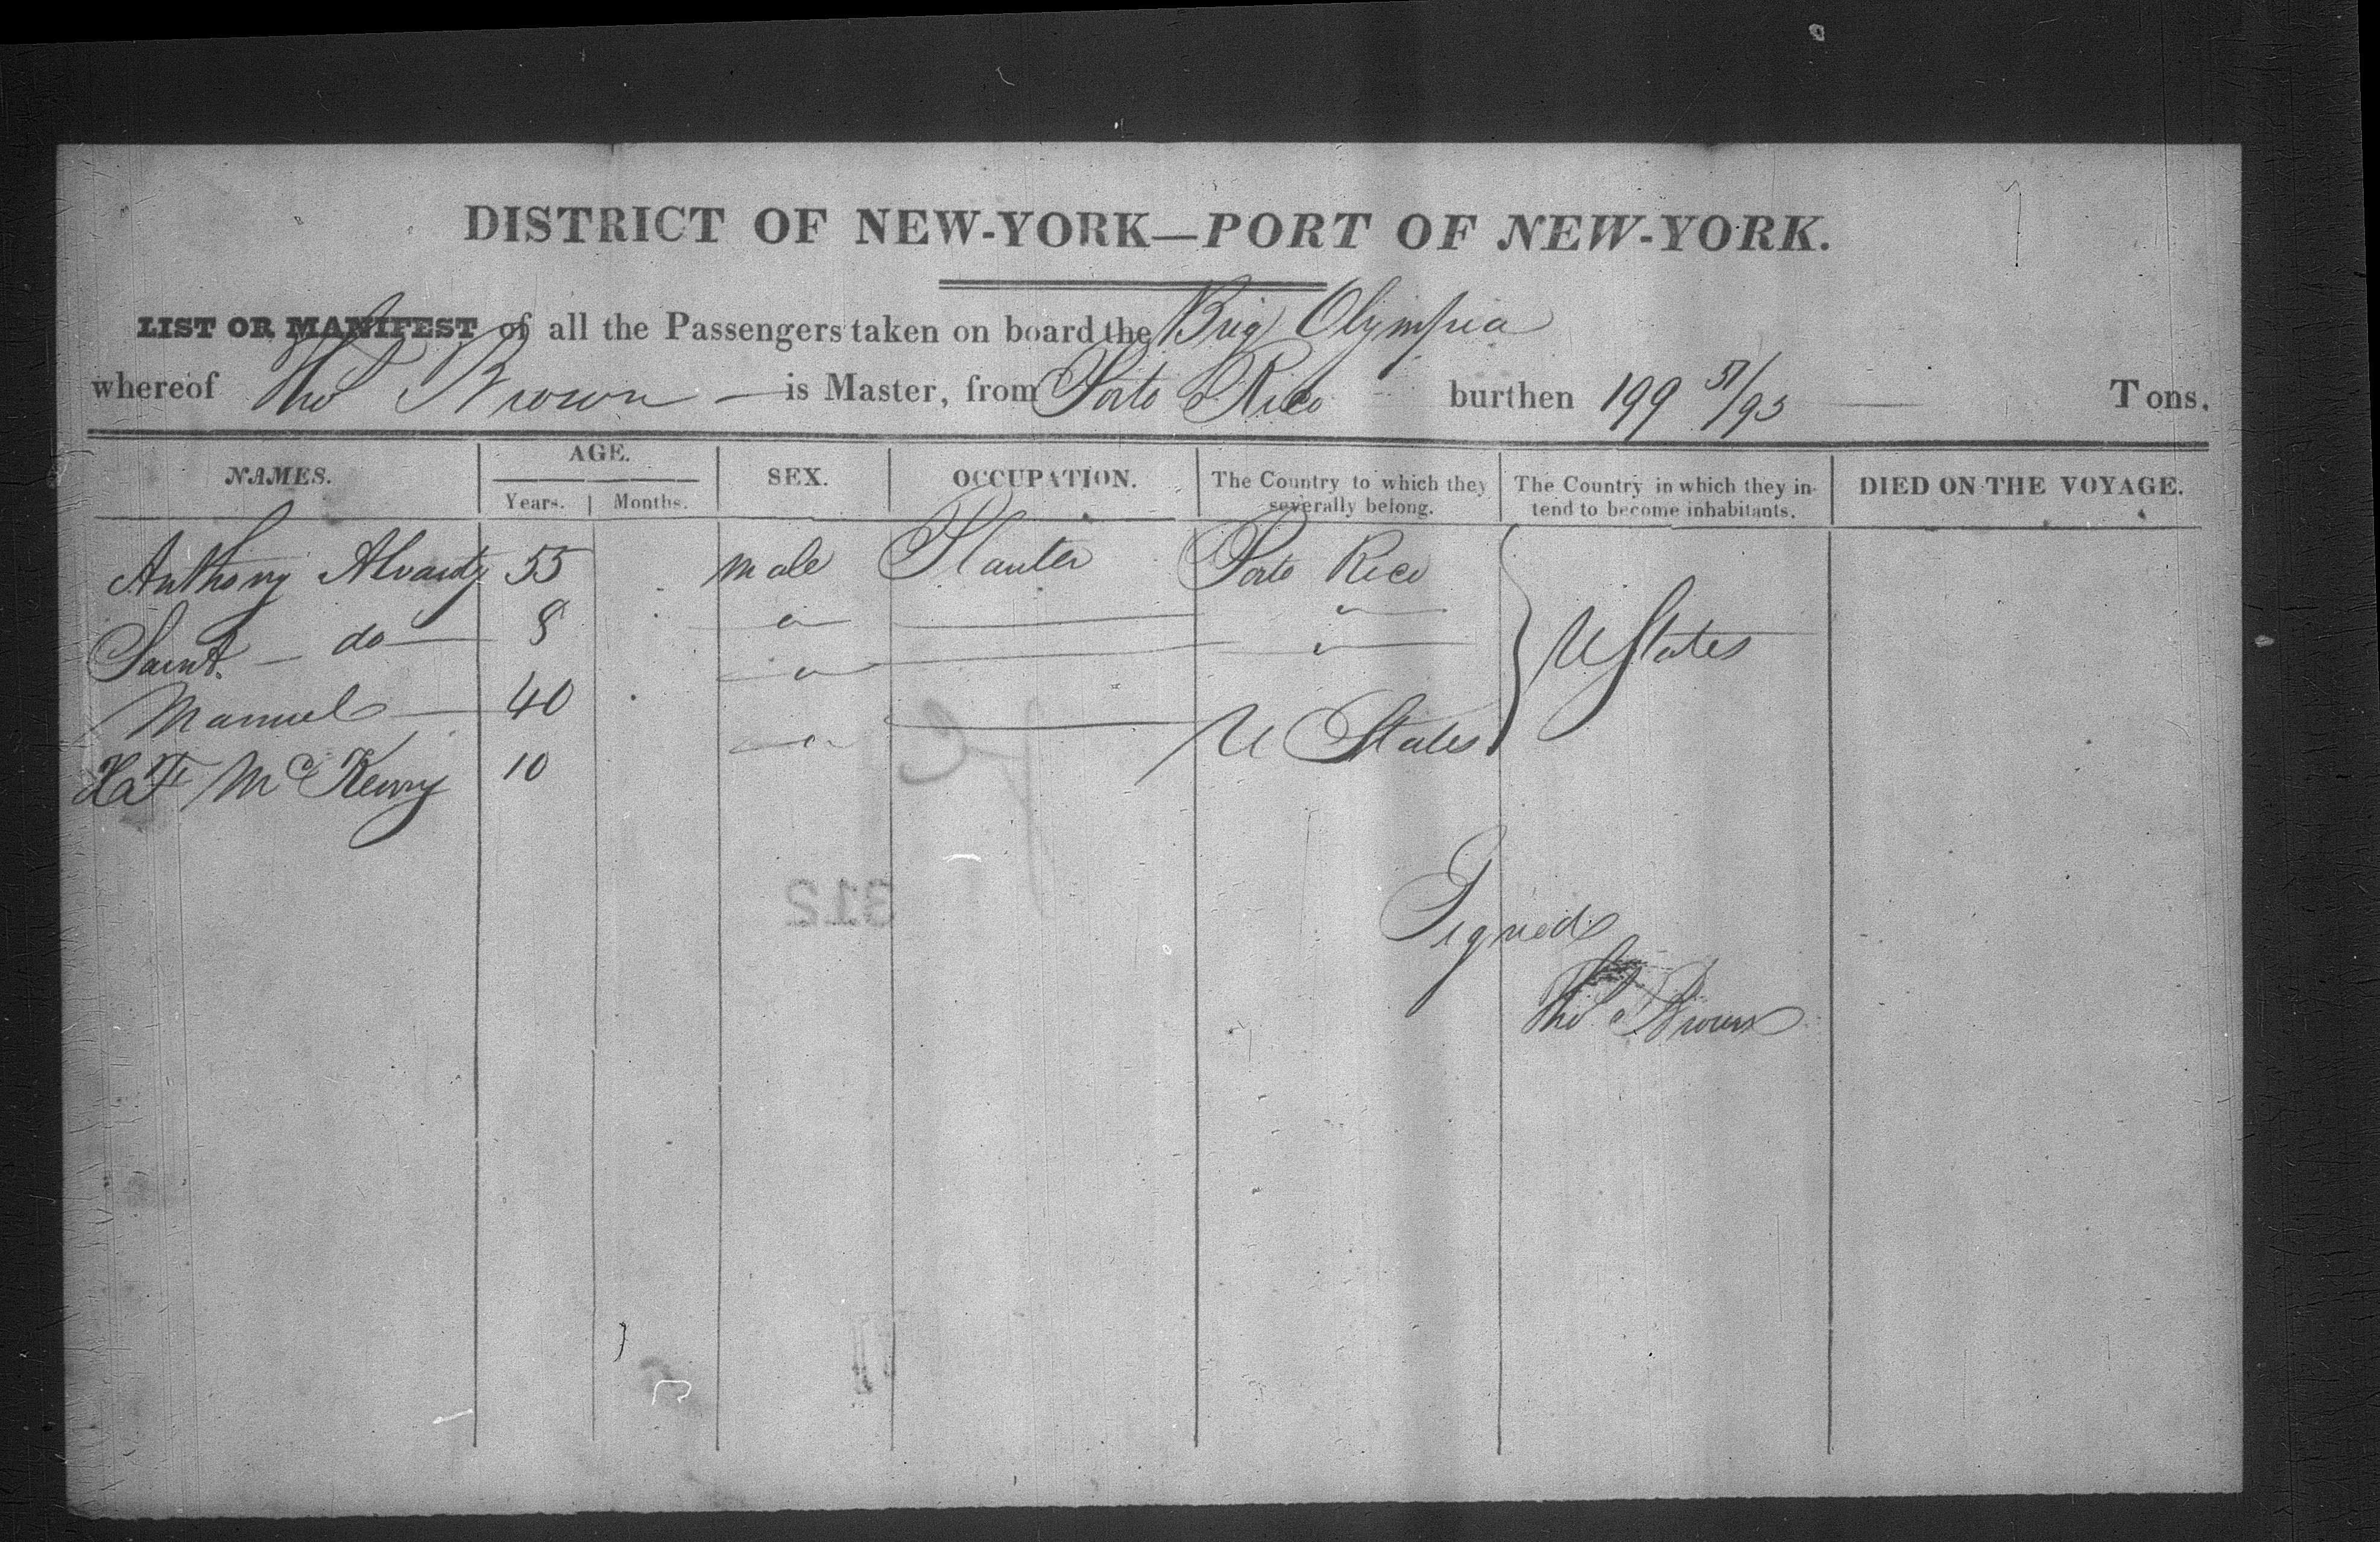 DISTRICT OF NEW-YORK—PORT OF NEW-YORK.
LIST OR MANIFEST of all the Passengers taken on board the Brig Olympia
whereof Tho Brown is Master, from Porto Rico burthen 199 51/95 Tons.
NAMES. AGE. SEX. OCCUPATION. The Country to which they severally belong. The Country in which they intend to become inhabitants. DIED ON THE VOYAGE.
Years. Months.
Anthony Alvardy 55 male Planter Porto Rico
do 8
Manuel 40
Mc Kenny 10 U States
U States
Signed
Tho Brown
312